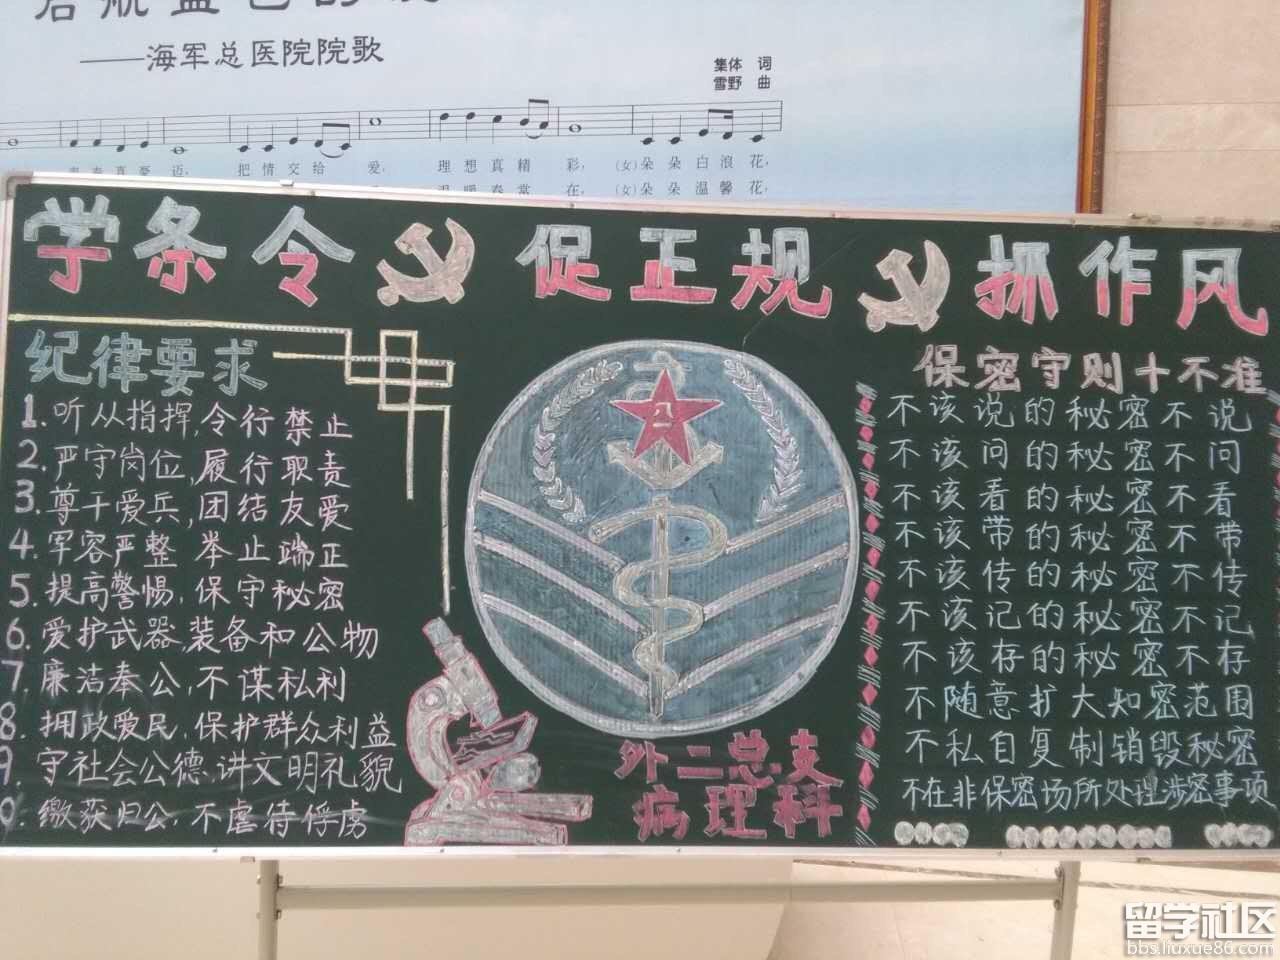 ——海军总医院院歌
集体 词
雪野 曲
把情交给 爱, 理想真精 彩, (女)朵朵白浪 花,
在, (女)朵朵温馨 花,
学条令 促正规 抓作风
纪律要求
1.听从指挥,令行禁止
2.严守岗位,履行职责
3.尊干爱兵,团结友爱
4.军容严整 举止端正
5.提高警惕,保守秘密
6.爱护武器,装备和公物
7.廉洁奉公,不谋私利
8.拥政爱民,保护群众利益
9.守社会公德.讲文明礼貌
0.缴获归公,不虐待俘虏
八
外二总支
病理科
保密守则十不准
不该说的秘密不说
不该问的秘密不问
不该看的秘密不看
不该带的秘密不带
不该传的秘密不传
不该记的秘密不记
不该存的秘密不存
不随意扩大知密范围
不私自复制销毁秘密
不在非保密场所处理涉密事项
留学社区
bbs.liuxue86.com